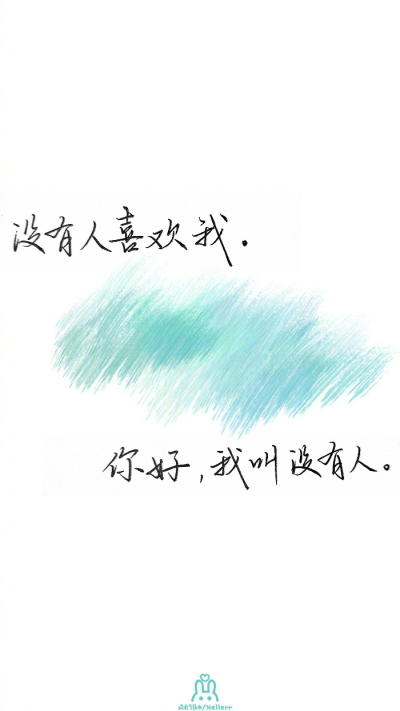 没有人喜欢我.
你好,我叫没有人。